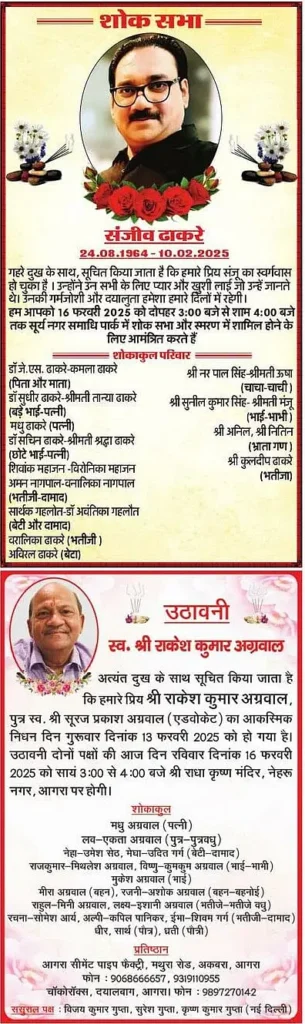 शोक सभा
संजीव ढाकरे
24.08.1964 - 10.02.2025
गहरे दुख के साथ, सूचित किया जाता है कि हमारे प्रिय संजू का स्वर्गवास
हो चुका है । उन्होंने उन सभी के लिए प्यार और खुशी लाई जो उन्हें जानते
थे। उनकी गर्मजोशी और दयालुता हमेशा हमारे दिलों में रहेगी।
हम आपको 16 फरवरी 2025 को दोपहर 3:00 बजे से शाम 4:00 बजे
तक सूर्य नगर समाधि पार्क में शोक सभा और स्मरण में शामिल होने के
लिए आमंत्रित करते हैं
शोकाकुल परिवार
डॉ जे.एस. ढाकरे-कमला ढाकरे
(पिता और माता)
डॉ सुधीर ढाकरे-श्रीमती तान्या ढाकरे
(बड़े भाई-पत्नी)
मधु ढाकरे (पत्नी)
डॉ सचिन ढाकरे-श्रीमती श्रद्धा ढाकरे
(छोटे भाई-पत्नी)
शिवांक महाजन -चिरोनिका महाजन
अमन नागपाल-वनालिका नागपाल
(भतीजी-दामाद)
सार्थक गहलोत-डॉ अवंतिका गहलौत
(बेटी और दामाद)
वरालिका ढाकरे (भतीजी )
अविरल ढाकरे (बेटा)
श्री नर पाल सिंह-श्रीमती ऊषा
(चाचा-चाची )
श्री सुनील कुमार सिंह- श्रीमती मंजू
(भाई-भाभी )
श्री अनिल, श्री नितिन
(भ्राता गण )
श्री कुलदीप ढाकरे
(भतीजा)
उठावनी
स्व. श्री राकेश कुमार अग्रवाल
अत्यंत दुख के साथ सूचित किया जाता है
कि हमारे प्रिय श्री राकेश कुमार अग्रवाल,
पुत्र स्व. श्री सूरज प्रकाश अग्रवाल (एडवोकेट) का आकस्मिक
निधन दिन गुरूवार दिनांक 13 फरवरी 2025 को हो गया है।
उठावनी दोनों पक्षों की आज दिन रविवार दिनांक 16 फरवरी
2025 को सायं 3:00 से 4:00 बजे श्री राधा कृष्ण मंदिर, नेहरू
नगर, आगरा पर होगी।
शोकाकुल
मधु अग्रवाल (पत्नी)
लव-एकता अग्रवाल (पुत्र-पुत्रवधु)
नेहा-उमेश सेठ, मेघा-उदित गर्ग (बेटी-दामाद)
राजकुमार-मिथलेश अग्रवाल, विष्णु-कुमकुम अग्रवाल (भाई-भाभी)
मुकेश अग्रवाल (भाई)
मीरा अग्रवाल (बहन), रजनी-अशोक अग्रवाल (बहन-बहनोई)
राहुल-मिनी अग्रवाल, लक्ष्य-इशानी अग्रवाल (भतीजे-भतीजे वधु)
रचना-सोमेश आर्य, अल्पी-कपिल पानिकर, ईभा-शिवम गर्ग (भतीजी-दामाद)
धीर, सार्थ (पौत्र), प्रती (पौत्री)
प्रतिष्ठान
आगरा सीमेंट पाइप फैक्ट्री, मथुरा रोड, अकबरा, आगरा
फोन : 9068666657, 9319110955
चॉकोरॉक्स, दयालबाग, आगरा। फोन : 9897270142
ससुराल पक्ष : विजय कुमार गुप्ता, सुरेश गुप्ता, कृष्ण कुमार गुप्ता (नई दिल्ली)